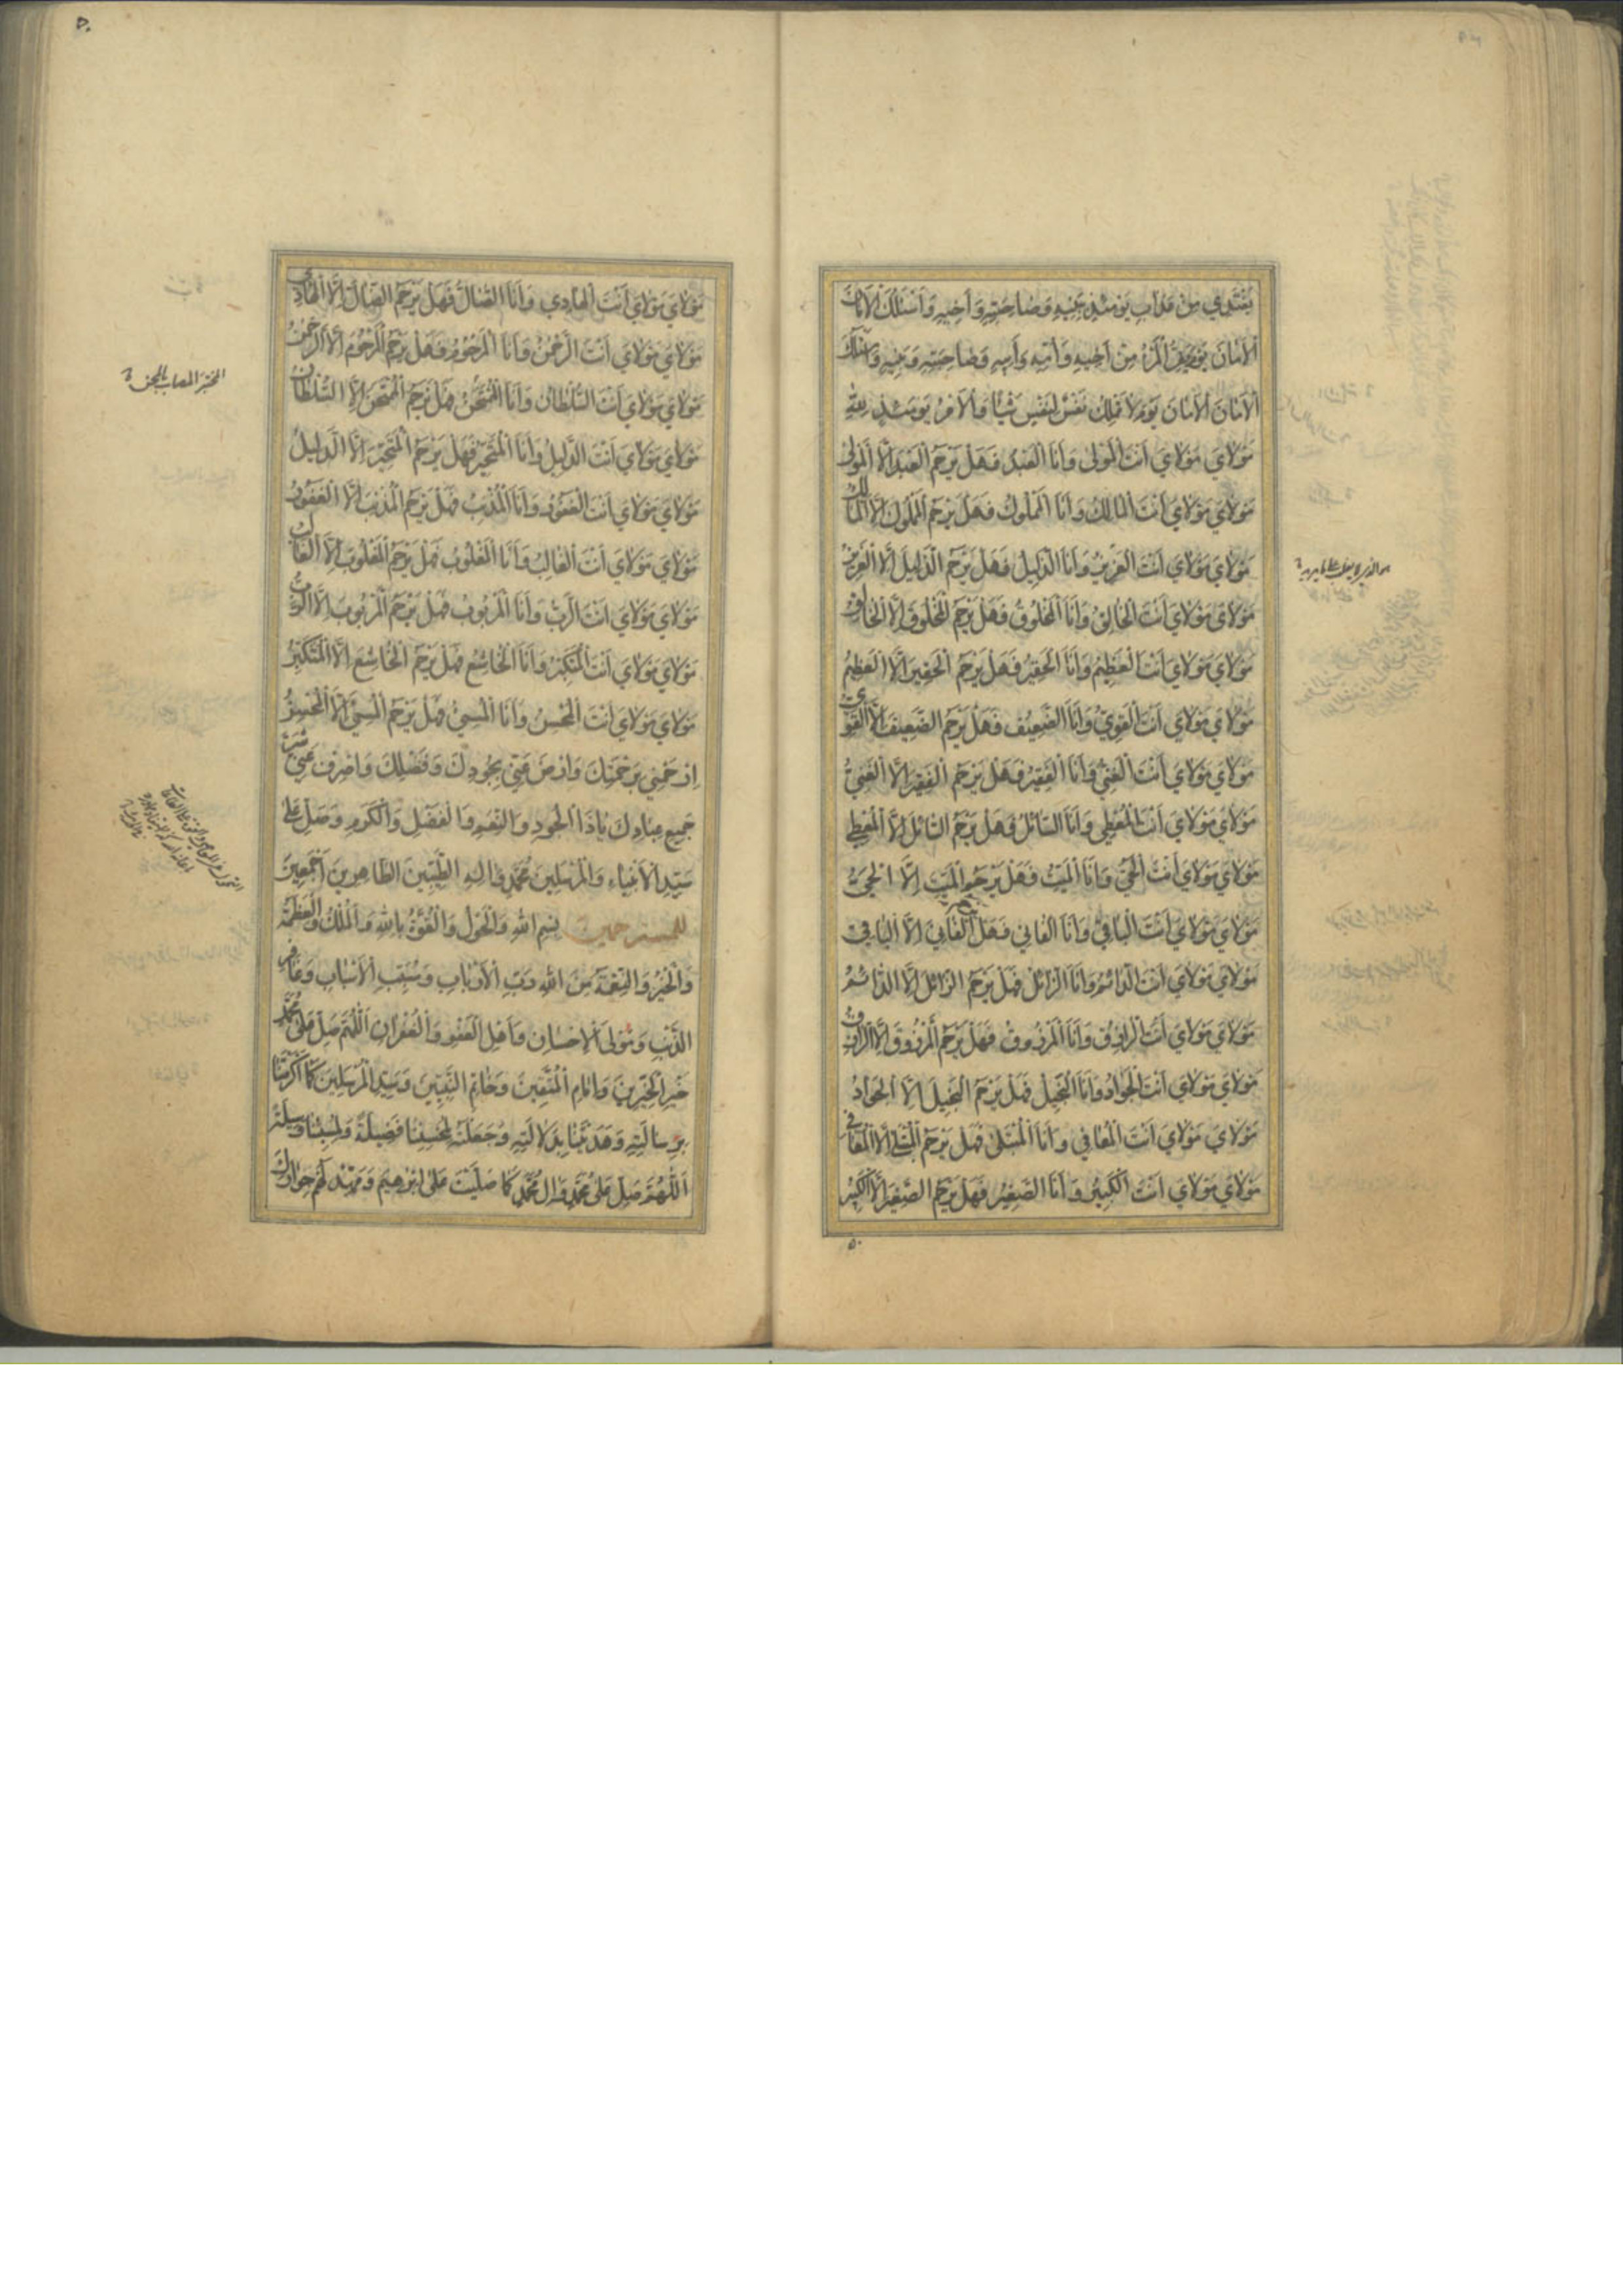 يَفْتَدِي مِنْ عَذَابِ يَوْمَئِذٍ بِبَنِيهِ وَصَاحِبَتِهِ وَأَخِيهِ وَأَسْئَلُكَ الْأَمَانَ
الْأَمَانَ يَوْمَ يَفِرُّ الْمَرْءُ مِنْ أَخِيهِ وَأُمِّهِ وَأَبِيهِ وَصَاحِبَتِهِ وَبَنِيهِ وَأَسْئَلُكَ
الْأَمَانَ الْأَمَانَ يَوْمَ لَا تَمْلِكُ نَفْسٌ لِنَفْسٍ شَيْئًا وَالْأَمْرُ يَوْمَئِذٍ لِلّٰهِ
مَوْلَايَ مَوْلَايَ أَنْتَ الْمَوْلَى وَأَنَا الْعَبْدُ فَهَلْ يَرْحَمُ الْعَبْدَ إِلَّا الْمَوْلَى
مَوْلَايَ مَوْلَايَ أَنْتَ الْمَالِكُ وَأَنَا الْمَمْلُوكُ فَهَلْ يَرْحَمُ الْمَمْلُوكَ إِلَّا الْمَالِكُ
مَوْلَايَ مَوْلَايَ أَنْتَ الْعَزِيزُ وَأَنَا الذَّلِيلُ فَهَلْ يَرْحَمُ الذَّلِيلَ إِلَّا الْعَزِيزُ
مَوْلَايَ مَوْلَايَ أَنْتَ الْخَالِقُ وَأَنَا الْمَخْلُوقُ فَهَلْ يَرْحَمُ الْمَخْلُوقَ إِلَّا الْخَالِقُ
مَوْلَايَ مَوْلَايَ أَنْتَ الْعَظِيمُ وَأَنَا الْحَقِيرُ فَهَلْ يَرْحَمُ الْحَقِيرَ إِلَّا الْعَظِيمُ
مَوْلَايَ مَوْلَايَ أَنْتَ الْقَوِيُّ وَأَنَا الضَّعِيفُ فَهَلْ يَرْحَمُ الضَّعِيفَ إِلَّا الْقَوِيُّ
مَوْلَايَ مَوْلَايَ أَنْتَ الْغَنِيُّ وَأَنَا الْفَقِيرُ فَهَلْ يَرْحَمُ الْفَقِيرَ إِلَّا الْغَنِيُّ
مَوْلَايَ مَوْلَايَ أَنْتَ الْمُعْطِي وَأَنَا السَّائِلُ فَهَلْ يَرْحَمُ السَّائِلَ إِلَّا الْمُعْطِي
مَوْلَايَ مَوْلَايَ أَنْتَ الْحَيُّ وَأَنَا الْمَيِّتُ فَهَلْ يَرْحَمُ الْمَيِّتَ إِلَّا الْحَيُّ
مَوْلَايَ مَوْلَايَ أَنْتَ الْبَاقِي وَأَنَا الْفَانِي فَهَلْ يَرْحَمُ الْفَانِيَ إِلَّا الْبَاقِي
مَوْلَايَ مَوْلَايَ أَنْتَ الدَّائِمُ وَأَنَا الزَّائِلُ فَهَلْ يَرْحَمُ الزَّائِلَ إِلَّا الدَّائِمُ
مَوْلَايَ مَوْلَايَ أَنْتَ الرَّازِقُ وَأَنَا الْمَرْزُوقُ فَهَلْ يَرْحَمُ الْمَرْزُوقَ إِلَّا الرَّازِقُ
مَوْلَايَ مَوْلَايَ أَنْتَ الْجَوَادُ وَأَنَا الْبَخِيلُ فَهَلْ يَرْحَمُ الْبَخِيلَ إِلَّا الْجَوَادُ
مَوْلَايَ مَوْلَايَ أَنْتَ الْمُعَافِي وَأَنَا الْمُبْتَلَى فَهَلْ يَرْحَمُ الْمُبْتَلَى إِلَّا الْمُعَافِي
مَوْلَايَ مَوْلَايَ أَنْتَ الْكَبِيرُ وَأَنَا الصَّغِيرُ فَهَلْ يَرْحَمُ الصَّغِيرَ إِلَّا الْكَبِيرُ
۵۰
۵۰
مَوْلَايَ مَوْلَايَ أَنْتَ الْهَادِي وَأَنَا الضَّالُّ فَهَلْ يَرْحَمُ الضَّالَّ إِلَّا الْهَادِي
مَوْلَايَ مَوْلَايَ أَنْتَ الرَّحْمٰنُ وَأَنَا الْمَرْحُومُ وَهَلْ يَرْحَمُ الْمَرْحُومَ إِلَّا الرَّحْمٰنُ
مَوْلَايَ مَوْلَايَ أَنْتَ السُّلْطَانُ وَأَنَا الْمُمْتَحَنُ فَهَلْ يَرْحَمُ الْمُمْتَحَنَ إِلَّا السُّلْطَانُ
مَوْلَايَ مَوْلَايَ أَنْتَ الدَّلِيلُ وَأَنَا الْمُتَحَيِّرُ فَهَلْ يَرْحَمُ الْمُتَحَيِّرَ إِلَّا الدَّلِيلُ
مَوْلَايَ مَوْلَايَ أَنْتَ الْغَفُورُ وَأَنَا الْمُذْنِبُ فَهَلْ يَرْحَمُ الْمُذْنِبَ إِلَّا الْغَفُورُ
مَوْلَايَ مَوْلَايَ أَنْتَ الْغَالِبُ وَأَنَا الْمَغْلُوبُ فَهَلْ يَرْحَمُ الْمَغْلُوبَ إِلَّا الْغَالِبُ
مَوْلَايَ مَوْلَايَ أَنْتَ الرَّبُّ وَأَنَا الْمَرْبُوبُ فَهَلْ يَرْحَمُ الْمَرْبُوبَ إِلَّا الرَّبُّ
مَوْلَايَ مَوْلَايَ أَنْتَ الْمُتَكَبِّرُ وَأَنَا الْخَاشِعُ فَهَلْ يَرْحَمُ الْخَاشِعَ إِلَّا الْمُتَكَبِّرُ
مَوْلَايَ مَوْلَايَ أَنْتَ الْمُحْسِنُ وَأَنَا الْمُسِيءُ فَهَلْ يَرْحَمُ الْمُسِيءَ إِلَّا الْمُحْسِنُ
اِرْحَمْنِي بِرَحْمَتِكَ وَارْضَ عَنِّي بِجُودِكَ وَفَضْلِكَ وَاصْرِفْ عَنِّي شَرَّ
جَمِيعِ عِبَادِكَ يَا ذَا الْجُودِ وَالنِّعَمِ وَالْفَضْلِ وَالْكَرَمِ وَصَلِّ عَلَى
سَيِّدِ الْأَنْبِيَاءِ وَالْمُرْسَلِينَ مُحَمَّدٍ وَآلِهِ الطَّيِّبِينَ الطَّاهِرِينَ أَجْمَعِينَ
بِسْمِ اللّٰهِ وَالْحَوْلُ وَالْقُوَّةُ بِاللّٰهِ وَالْمُلْكُ وَالْعَظَمَةُ
وَالْخَيْرُ وَالنِّعْمَةُ مِنَ اللّٰهِ رَبِّ الْأَرْبَابِ وَمُسَبِّبِ الْأَسْبَابِ وَغَافِرِ
الذَّنْبِ وَمُولِي الْإِحْسَانِ وَأَهْلِ الْعَفْوِ وَالْغُفْرَانِ اَللّٰهُمَّ صَلِّ عَلَى مُحَمَّدٍ
خَيْرِ الْخَيِّرِينَ وَإِمَامِ الْمُتَّقِينَ وَخَاتِمِ النَّبِيِّينَ وَسَيِّدِ الْمُرْسَلِينَ كَمَا أَكْرَمْتَنَا
بِرِسَالَتِهِ وَهَدَيْتَنَا بِدَلَالَتِهِ وَجَعَلْتَهُ لِمُحْسِنِنَا فَضِيلَةً وَلِمُسِيئِنَا وَسِيلَةً
اَللّٰهُمَّ صَلِّ عَلَى مُحَمَّدٍ وَآلِ مُحَمَّدٍ كَمَا صَلَّيْتَ عَلَى إِبْرٰهِيمَ